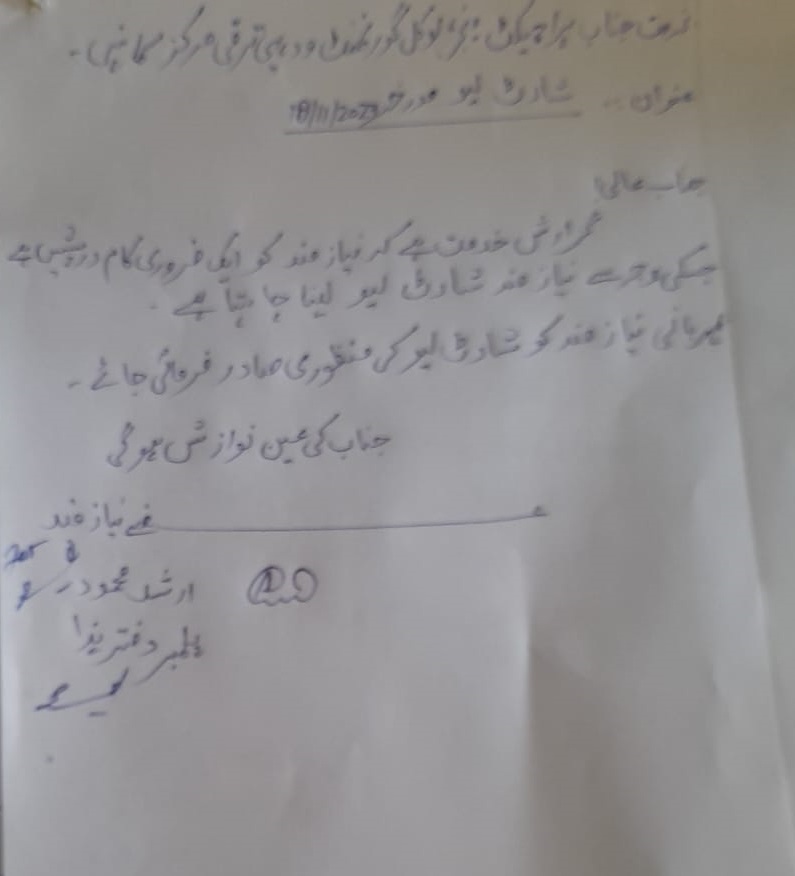 خدمت جناب پراجیکٹ منیجر لوکل گورنمنٹ و دیہی ترقی مرکز سماہنی۔
عنوان :۔ شارٹ لیو مورخہ 18/11/2023
جناب عالی!
گزارش خدمت ہے کہ نیاز مند کو ایک ضروری کام درپیش ہے
جسکی وجہ سے نیاز مند شارٹ لیو لینا چاہتا ہے۔
مہربانی نیاز مند کو شارٹ لیو کی منظوری صادر فرمائی جائے۔
جناب کی عین نوازش ہوگی
نیاز مند
ارشد محمود
پلمبر دفتر ہذا